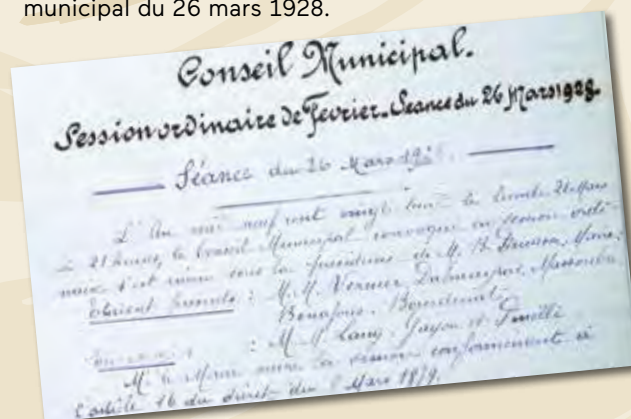 municipal du 26 mars 1928.
Conseil Municipal.
Session ordinaire de Fevrier. Seance du 26 Mars 1928.
Séance du 26 Mars 1928.
L'An mil neuf cent vingt huit le Lundi 26 Mars
à 21 heures, le Conseil Municipal convoqué en session ordi-
naire s'est réuni sous la présidence de M. Maire.
Etaient Présents : M.M. Vernier,
:  M.M. Lang, Gayon et
M. le Maire ouvre la séance conformément à
l'article 16 du décret du Mars 1879.